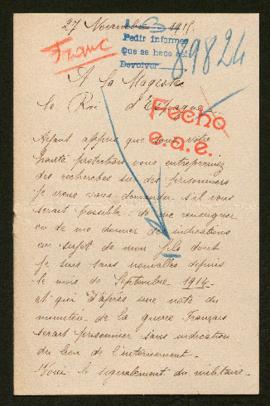 27 Novembre 1915
Pedir informes
que se hace
Devolver
89824
Franc
A Sa Majesté
le Roi d'Espagne
Fecho
a.a.e.
Ayant appris que sous votre
haute protection vous entreprenez
des recherches sur des prisonniers
je viens vous demander s'il vous
serait possible de me renseigner
ou de me donner des indications
au sujet de mon fils dont
je suis sans nouvelles depuis
le mois de Septembre 1914
et qui d'après une note du
ministère de la guerre Français
serait prisonnier sans indication
du lieu de l'internement.
Voici le signalement du militaire.